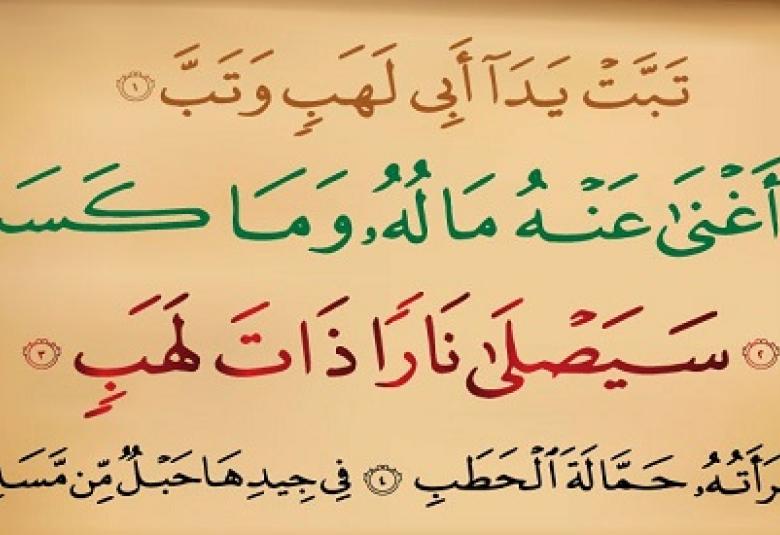 تَبَّتْ يَدَآ أَبِى لَهَبٍ وَتَبَّ ١
أَغْنَىٰ عَنْهُ مَالُهُۥ وَمَا كَسَ
٢ سَيَصْلَىٰ نَارًا ذَاتَ لَهَبٍ ٣
رَأَتُهُۥ حَمَّالَةَ ٱلْحَطَبِ ٤ فِي جِيدِهَا حَبْلٌ مِّن مَّسَدٍ